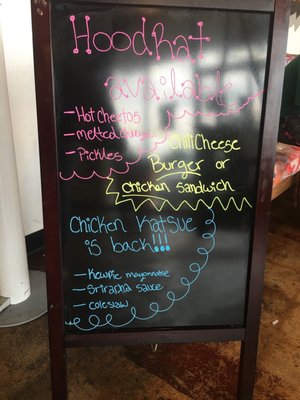 HoodRat
available
- Hot Cheetos
- melted cheese
- Pickles
Chili Cheese
Burger or
chicken sandwich
Chicken Katsue
is back!!!
- Kewpie mayonnaise
- Sriracha sauce
- coleslaw